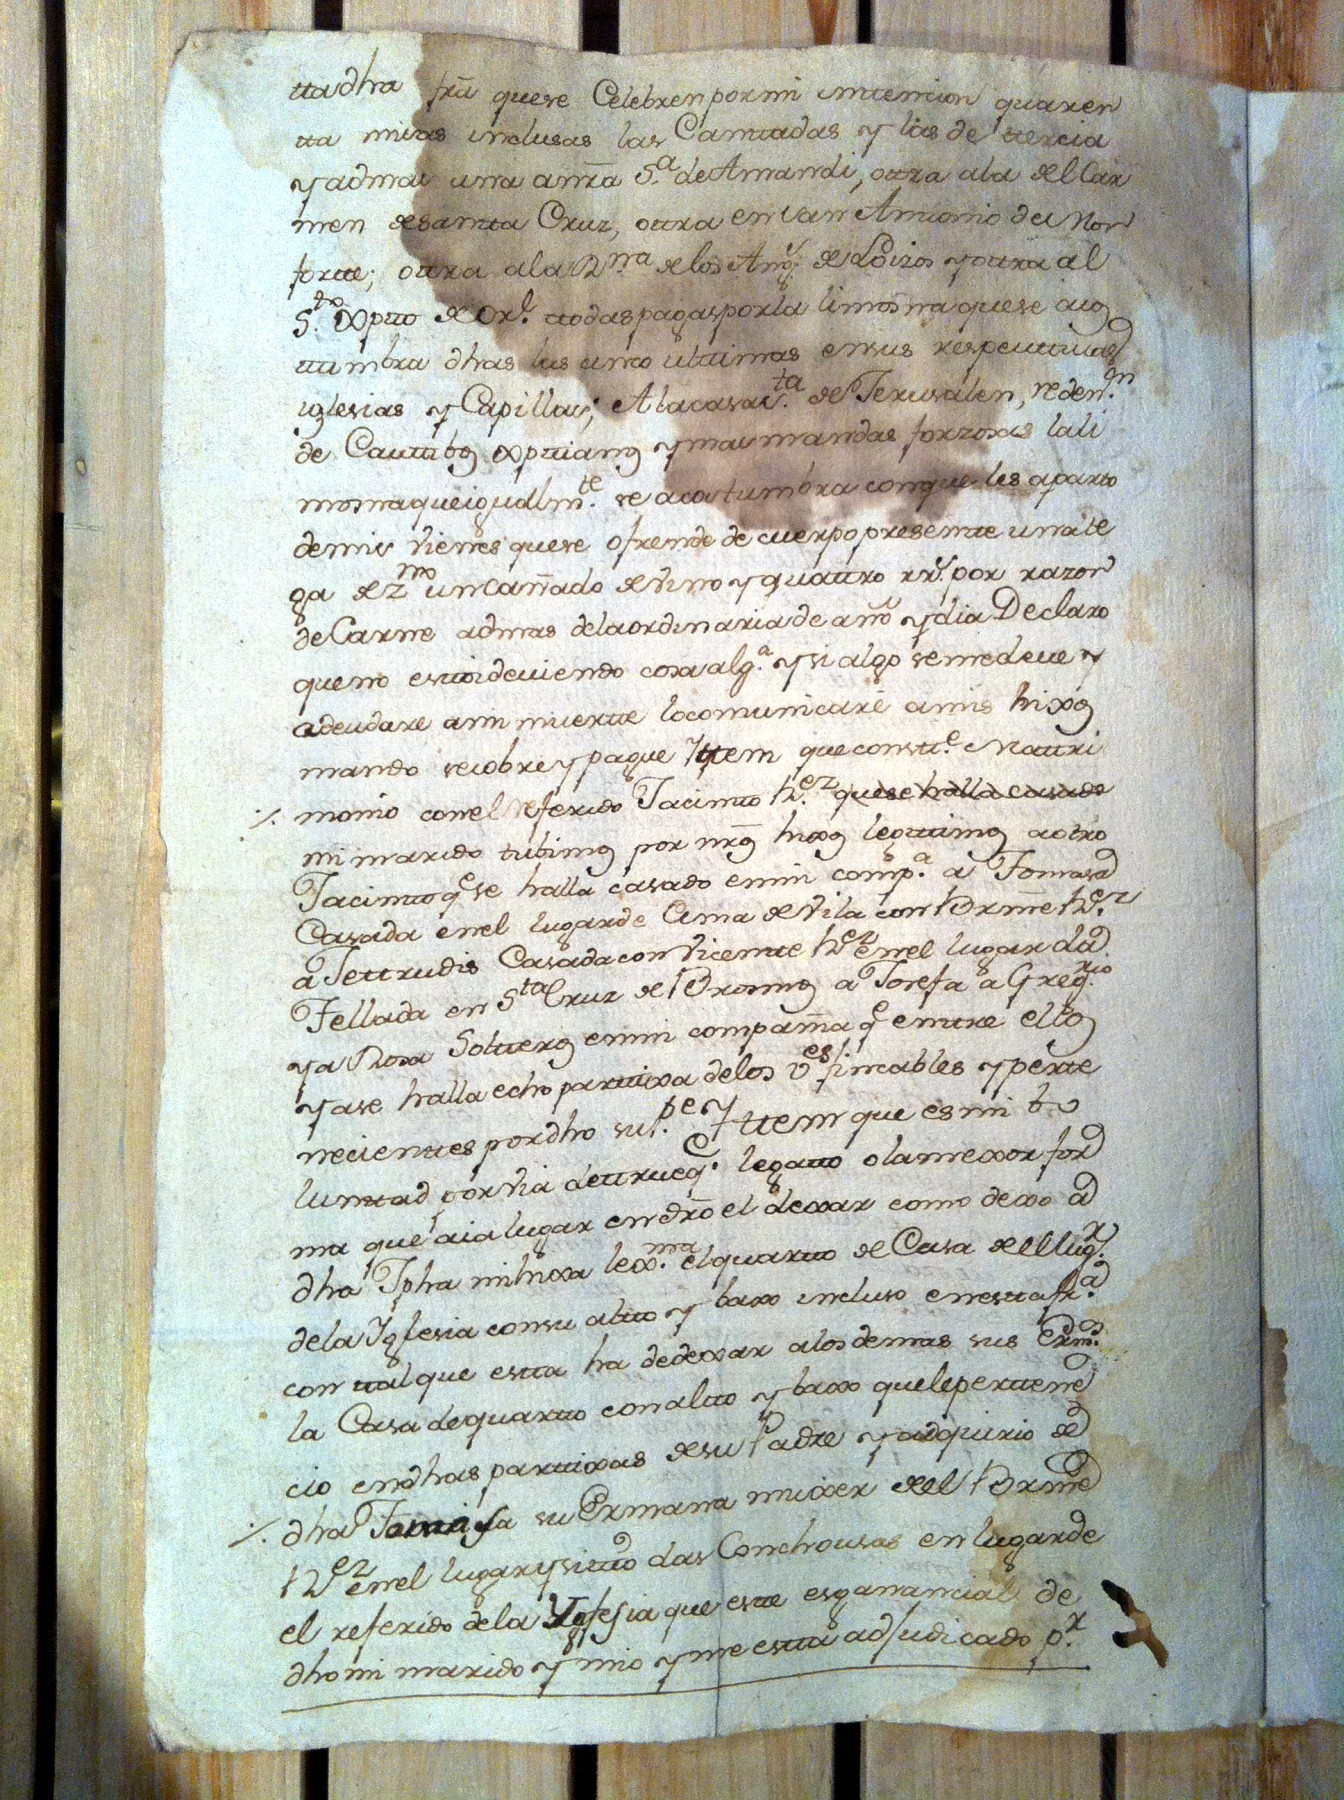 tta dha frã que se Celebren por mi inttencion quaren
tta misas inclusas las Canttadas y las de ttercia
y admas una a nrã S.ª de Amandi, ottra a la del Car
men de Santta Cruz, ottra en San Anttonio de Mon
fortte; ottra a la Rna de los Ang.s de Loizos y ottra al
S.to Xptto de Or.e ttodas pagas por la limosna que se acos
ttumbra dhas las cinco ulttimas en sus respecttivas
iglesias y Capillas; A la casa s.ta de Jerusalen, reden.on
de Cauttibos xpttianos y mas mandas forzosas la li
mosna que igualm.te se acostumbra con que les aparto
de mis vienes que se ofrende de cuerpo presentte una te
ga de z.no un Cañado de vino y quattro rr.s por razon
de Carne admas de la ordinaria de año y dia Declaro
que no esttoi deviendo cosa alg.ª y si algo se me deve y
adeudare a mi muertte lo comunicaré a mis hixos
mando se cobre y pague Yttem que con st.e Mattri
./. monio con el referido Jacintto Fr.ez que se halla casado
mi marido tubimos por nr̃os hixos legittimos a otro
Jacintto q.e se halla casado en mi comp.ª a Tomasa
Casada en el lugar de Cima de Vila con Brme Fr.ez
a Jettrudis Casada con Vicentte Fr.ez en el lugar da
Fellada en S.ta Cruz de Brosmos a Josefa a Greg.rio
y a Rosa Soltteros en mi compañia q.e enttre ellos
ya se halla echo parttixa de los v.es fincables y pertte
necienttes por dho su P.e Yttem que es mi bo
lunttad por via de ttrueq.e legatto o la mexor for
ma que aia lugar en dr̃o el dexar como dexo a
dha Jpha mi hixa lex.ma el quartto de Casa del lug.r
de la Yglesia con su altto y baxo incluso en estta fr.ª
con ttal que estta ha de dexar a los demas sus Erm.os
la Casa de quartto con altto y baxo que le perttene
cio en dhas parttixas de su Padre y adquirio de
./. dha Tomasa su Ermana muixer del Brme
Fr.ez en el lugar y sitto das Conchousas en lugar de
el referido de la Yglesia que este es ganancial de
dho mi marido y mio y me estta adjudicado p.r